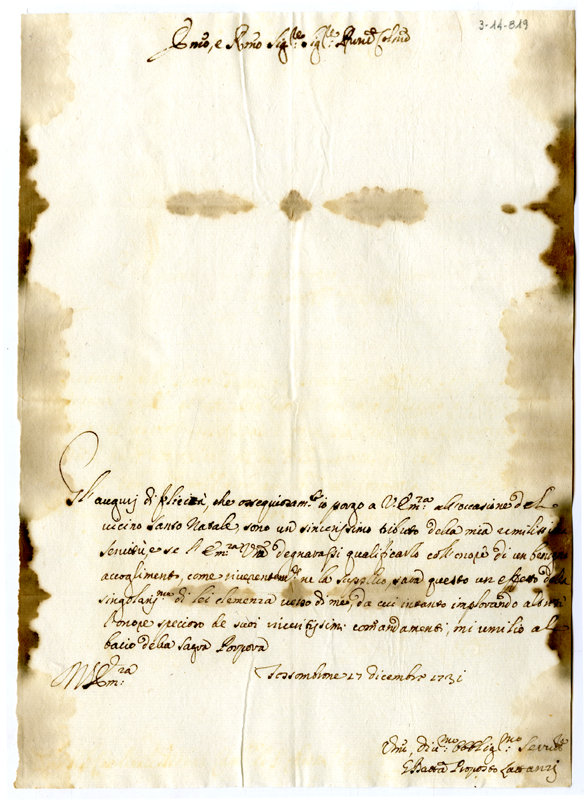 3-14-819
Emo, e Rmo Sigre Sigre Pnrõe Colmo
Gl'augurij di felicità, che ossequiosamte io porgo a V. Emza all'occasione del
vicino Santo Natale sono un sincerissimo tributo della mia umilissima
servitù, e se l'Emza Vra degnarassi qualificarlo coll'onore di un benigno
accoglimento, come riverentemte ne la supplico, sarà questo un effetto della
singolarissma di lei clemenza verso di me, da cui intanto implorando
l'onore specioso de suoi riveritissimi comandamenti, mi umilio al
bacio della Sagra Porpora
Fossombrone 17 dicembre 1731
Umo, divmo obbligmo Servre
G Batta Proposto Lattanzi